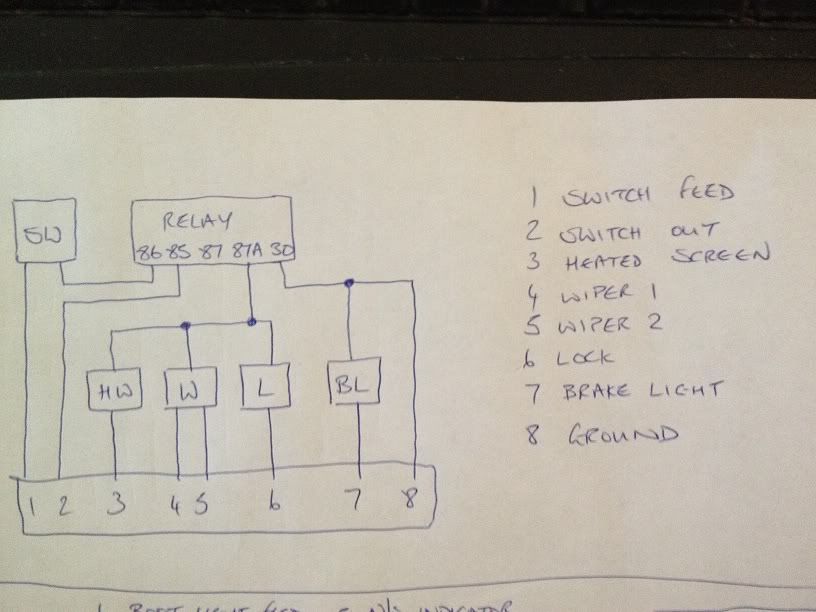 SW
RELAY
86 85 87 87A 30
HW W L BL
1 2 3 4 5 6 7 8
1 SWITCH FEED
2 SWITCH OUT
3 HEATED SCREEN
4 WIPER 1
5 WIPER 2
6 LOCK
7 BRAKE LIGHT
8 GROUND
INDICATOR